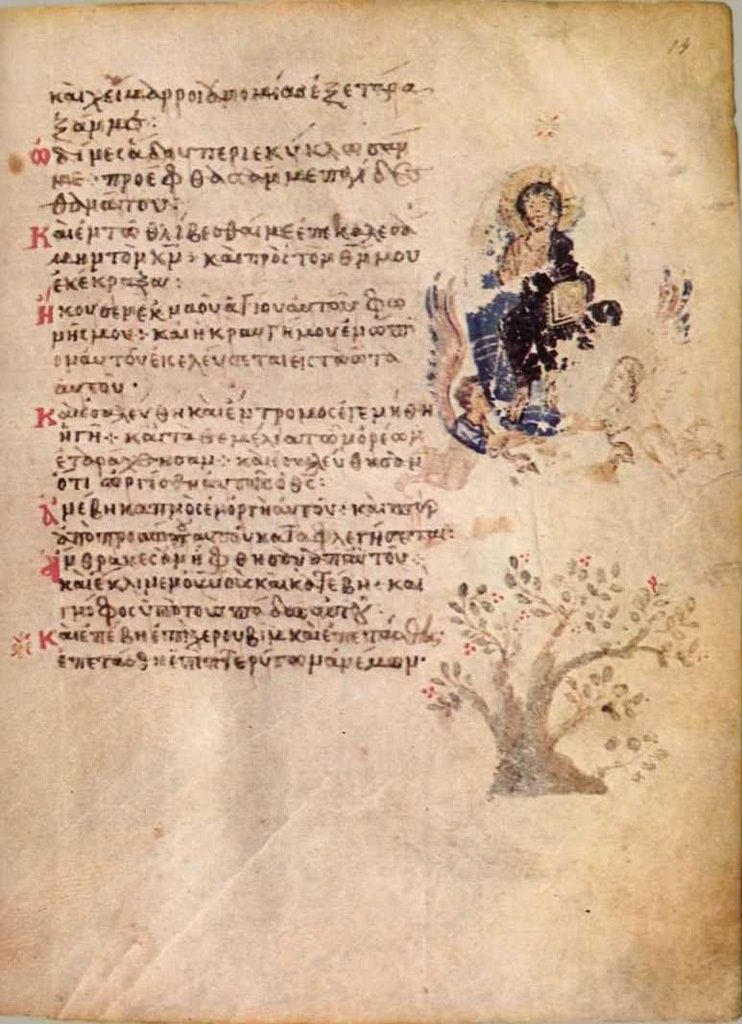 14
καὶ χείμαρροι ἀνομίας ἐξετάρα
ξάν με:
ὠδῖνες ἅδου περιεκύκλωσάν
με· προέφθασάν με παγίδες
θανάτου:
Καὶ ἐν τῶ θλίβεσθαί με ἐπεκαλεσά
μην τὸν κν· καὶ πρὸς τὸν θν μου
ἐκέκραξα:
Ἤκουσεν ἐκ ναοῦ ἁγίου αὐτοῦ φω
νῆς μου· καὶ ἡ κραυγή μου ἐνώπι
ον αὐτοῦ εἰσελεύσεται εἰς τὰ ὦτα
αὐτοῦ·
Καὶ ἐσαλεύθη καὶ ἔντρομος ἐγενήθη
ἡ γῆ· καὶ τὰ θεμέλια τῶν ὀρέων
ἐταράχθησαν· καὶ ἐσαλεύθησαν
ὅτι ὠργίσθη αὐτοῖς ὁ θς:
Ἀνέβη καπνὸς ἐν ὀργῆ αὐτοῦ· καὶ πῦρ
ἀπὸ προσώπου αὐτοῦ καταφλεγήσεται:
Ἄνθρακες ἀνήφθησαν ἀπ αὐτοῦ·
καὶ ἔκλινεν οὐνοὺς καὶ κατέβη· καὶ
γνόφος ὑπὸ τοὺς πόδας αὐτοῦ
Καὶ ἐπέβη ἐπὶ χερουβὶμ καὶ ἐπετάσθη·
ἐπετάσθη ἐπὶ πτερύγων ἀνέμων·